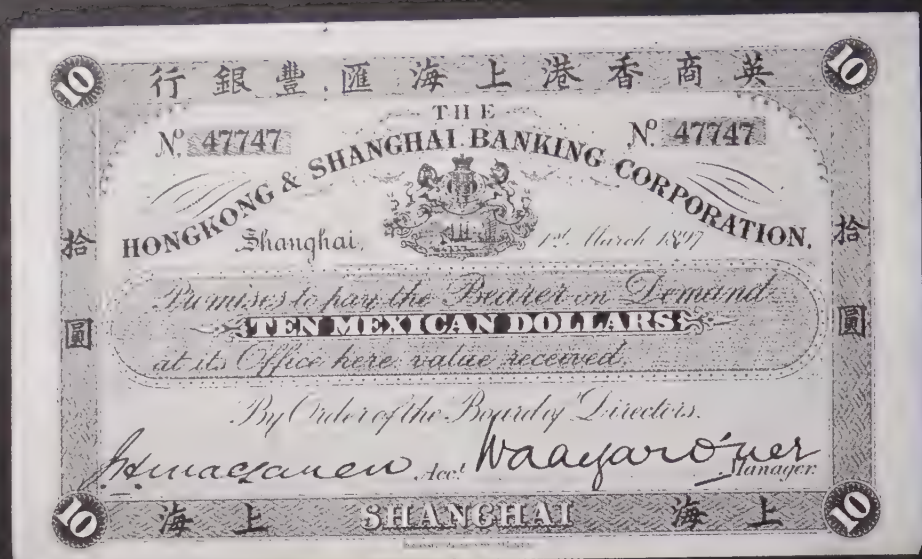 10 行銀豐匯海上港香商英 10
THE
Nº 47747 Nº 47747
HONGKONG & SHANGHAI BANKING CORPORATION.
Shanghai, 1st March 1897
拾圓 拾圓
Promises to pay the Bearer on Demand
TEN MEXICAN DOLLARS
at its Office here value received.
By Order of the Board of Directors.
Acct. Manager.
10 海上 SHANGHAI 海上 10